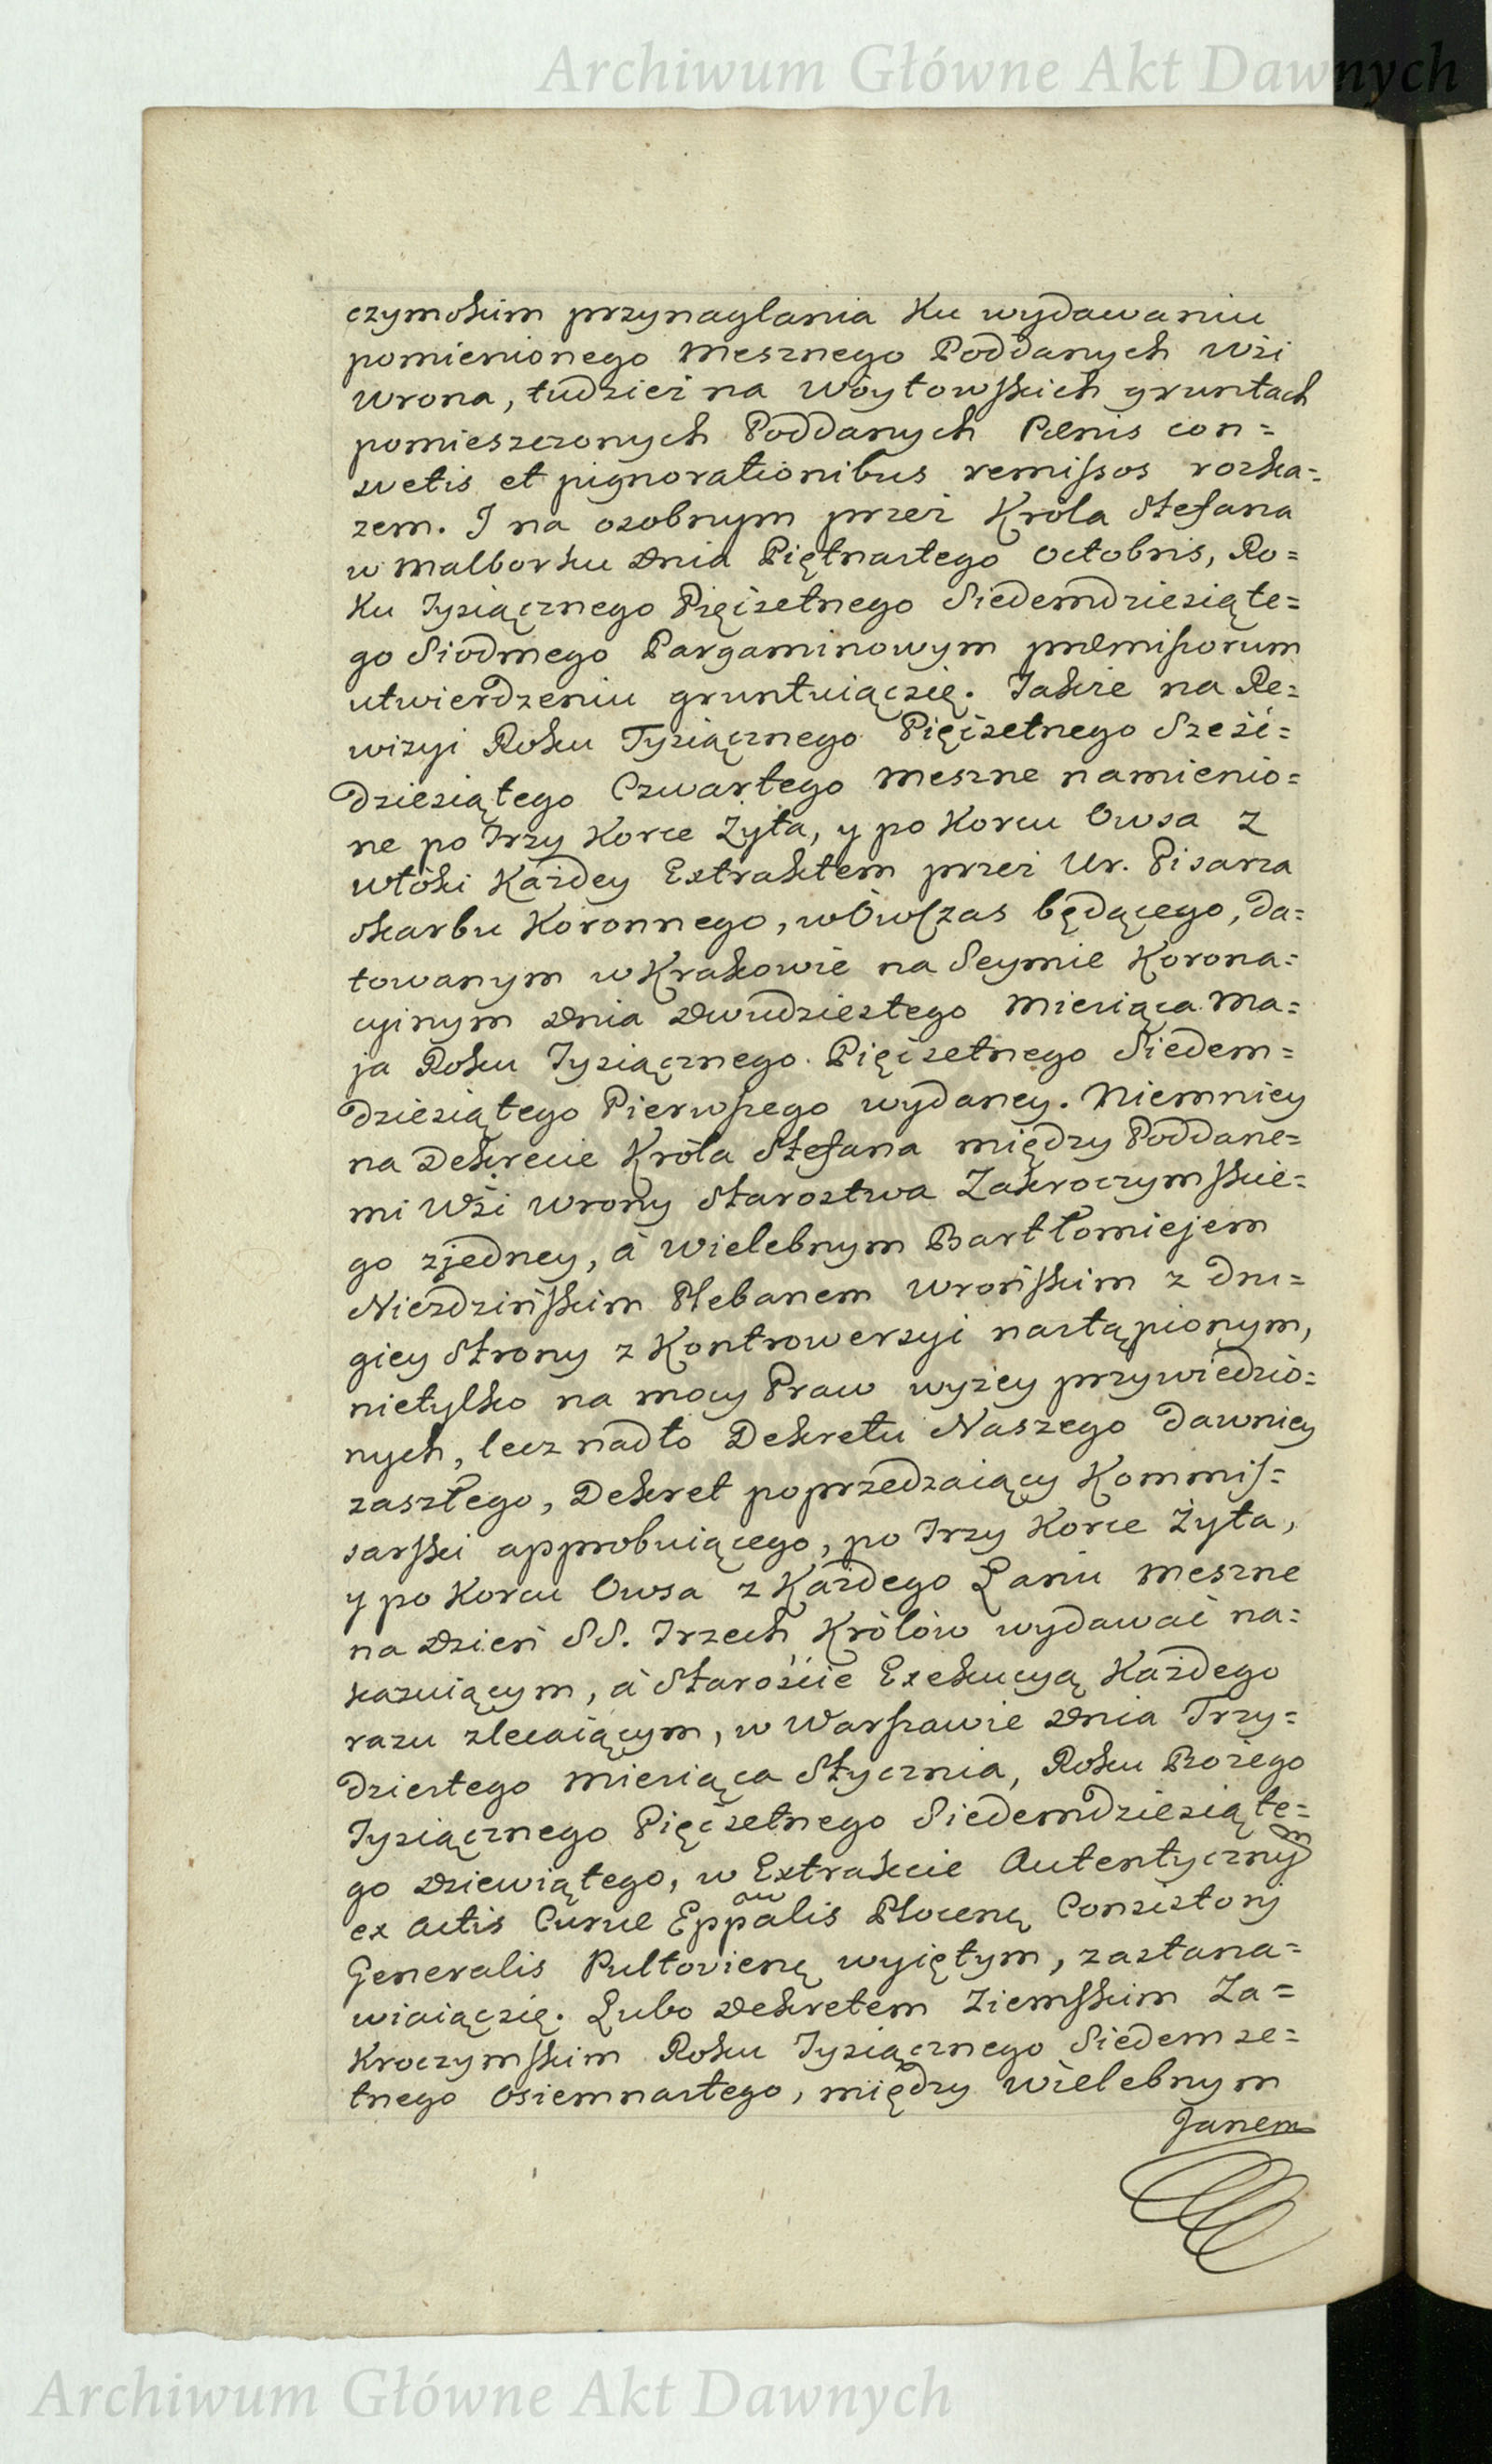 Archiwum Główne Akt Dawnych
czymskim przynaglania Ku wydawaniu
pomienionego Mesznego Poddanych Wśi
Wrona, tudzież na Wóytowskich gruntach
pomieszczonych Poddanych Pœnis con=
svetis et pignorationibus remissos rozka=
zem. I na osobnym przez Króla Stefana
w Malborku Dnia Piętnastego Octobris, Ro=
Ku Tysiącznego Pięćsetnego Siedemdziesiąte=
go Siodmego Pargaminowym præmissorum
utwierdzeniu gruntuiącsię. Jakże na Re=
wizyi Roku Tysiącznego Pięćsetnego Sześć=
dziesiątego Czwartego Meszne namienio=
ne po Trzy Korce Żyta, y po Korcu Owsa z
Włóki Każdey Extraktem przez Ur. Pisarza
Skarbu Koronnego, wówczas będącego, da=
towanym w Krakowie na Seymie Korona=
cyinym Dnia Dwudziestego Miesiąca Ma=
ja Roku Tysiącznego Pięćsetnego Siedem=
dziesiątego Pierwszego wydaney. Niemniey
na Dekrecie Króla Stefana między Poddane=
mi Wśi Wrony Starostwa Zakroczymskie=
go zjedney, à Wielebnym Bartłomiejem
Niezdzińskim Plebanem Wrońskim z dru=
giey Strony z Kontrowersyi nastąpionym,
nietylko na mocy Praw wyżey przywiedzio=
nych, lecz nadto Dekretu Naszego dawniey
zaszłego, Dekret poprzedzaiący Kommis=
sarski approbuiącego, po Trzy Korce Żyta,
y po Korcu Owsa z Każdego Łanu Meszne
na Dzień SS. Trzech Królów wydawać na=
kazuiącym, à Starośćie Exekucyą Każdego
razu zlecaiącym, w Warszawie Dnia Trzy=
dziestego Miesiąca Stycznia, Roku Bożego
Tysiącznego Pięćsetnego Siedemdziesiąte=
go Dziewiątego, w Extrakcie Autentycznym
ex Actis Curiæ Eppalis Plocenę Consistorij
Generalis Pultovienę wyiętym, zastana=
wiaiącsię. Lubo Dekretem Ziemskim Za=
Kroczymskim Roku Tysiącznego Siedemse=
tnego Osiemnastego, między Wielebnym
Janem
Archiwum Główne Akt Dawnych